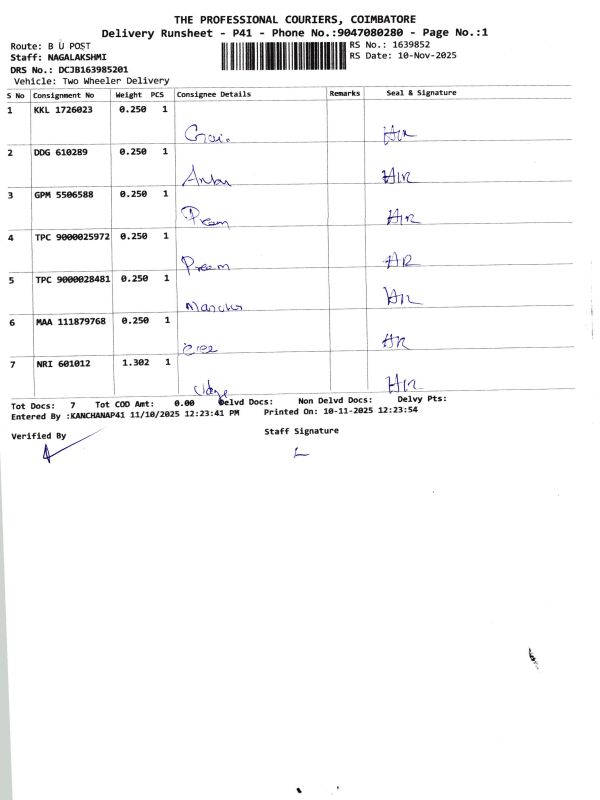 THE PROFESSIONAL COURIERS, COIMBATORE
Delivery Runsheet - P41 - Phone No.:9047080280 - Page No.:1
Route: B U POST
RS No.: 1639852
Staff: NAGALAKSHMI
RS Date: 10-Nov-2025
DRS No.: DCJB163985201
Vehicle: Two Wheeler Delivery
S No Consignment No Weight PCS Consignee Details Remarks Seal & Signature
1 KKL 1726023 0.250 1
2 DDG 610289 0.250 1
3 GPM 5506588 0.250 1
Prem
4 TPC 9000025972 0.250 1
Preem
5 TPC 9000028481 0.250 1
6 MAA 111879768 0.250 1
7 NRI 601012 1.302 1
Tot Docs: 7 Tot COD Amt: 0.00 Delvd Docs: Non Delvd Docs: Delvy Pts:
Entered By :KANCHANAP41 11/10/2025 12:23:41 PM Printed On: 10-11-2025 12:23:54
Verified By
Staff Signature